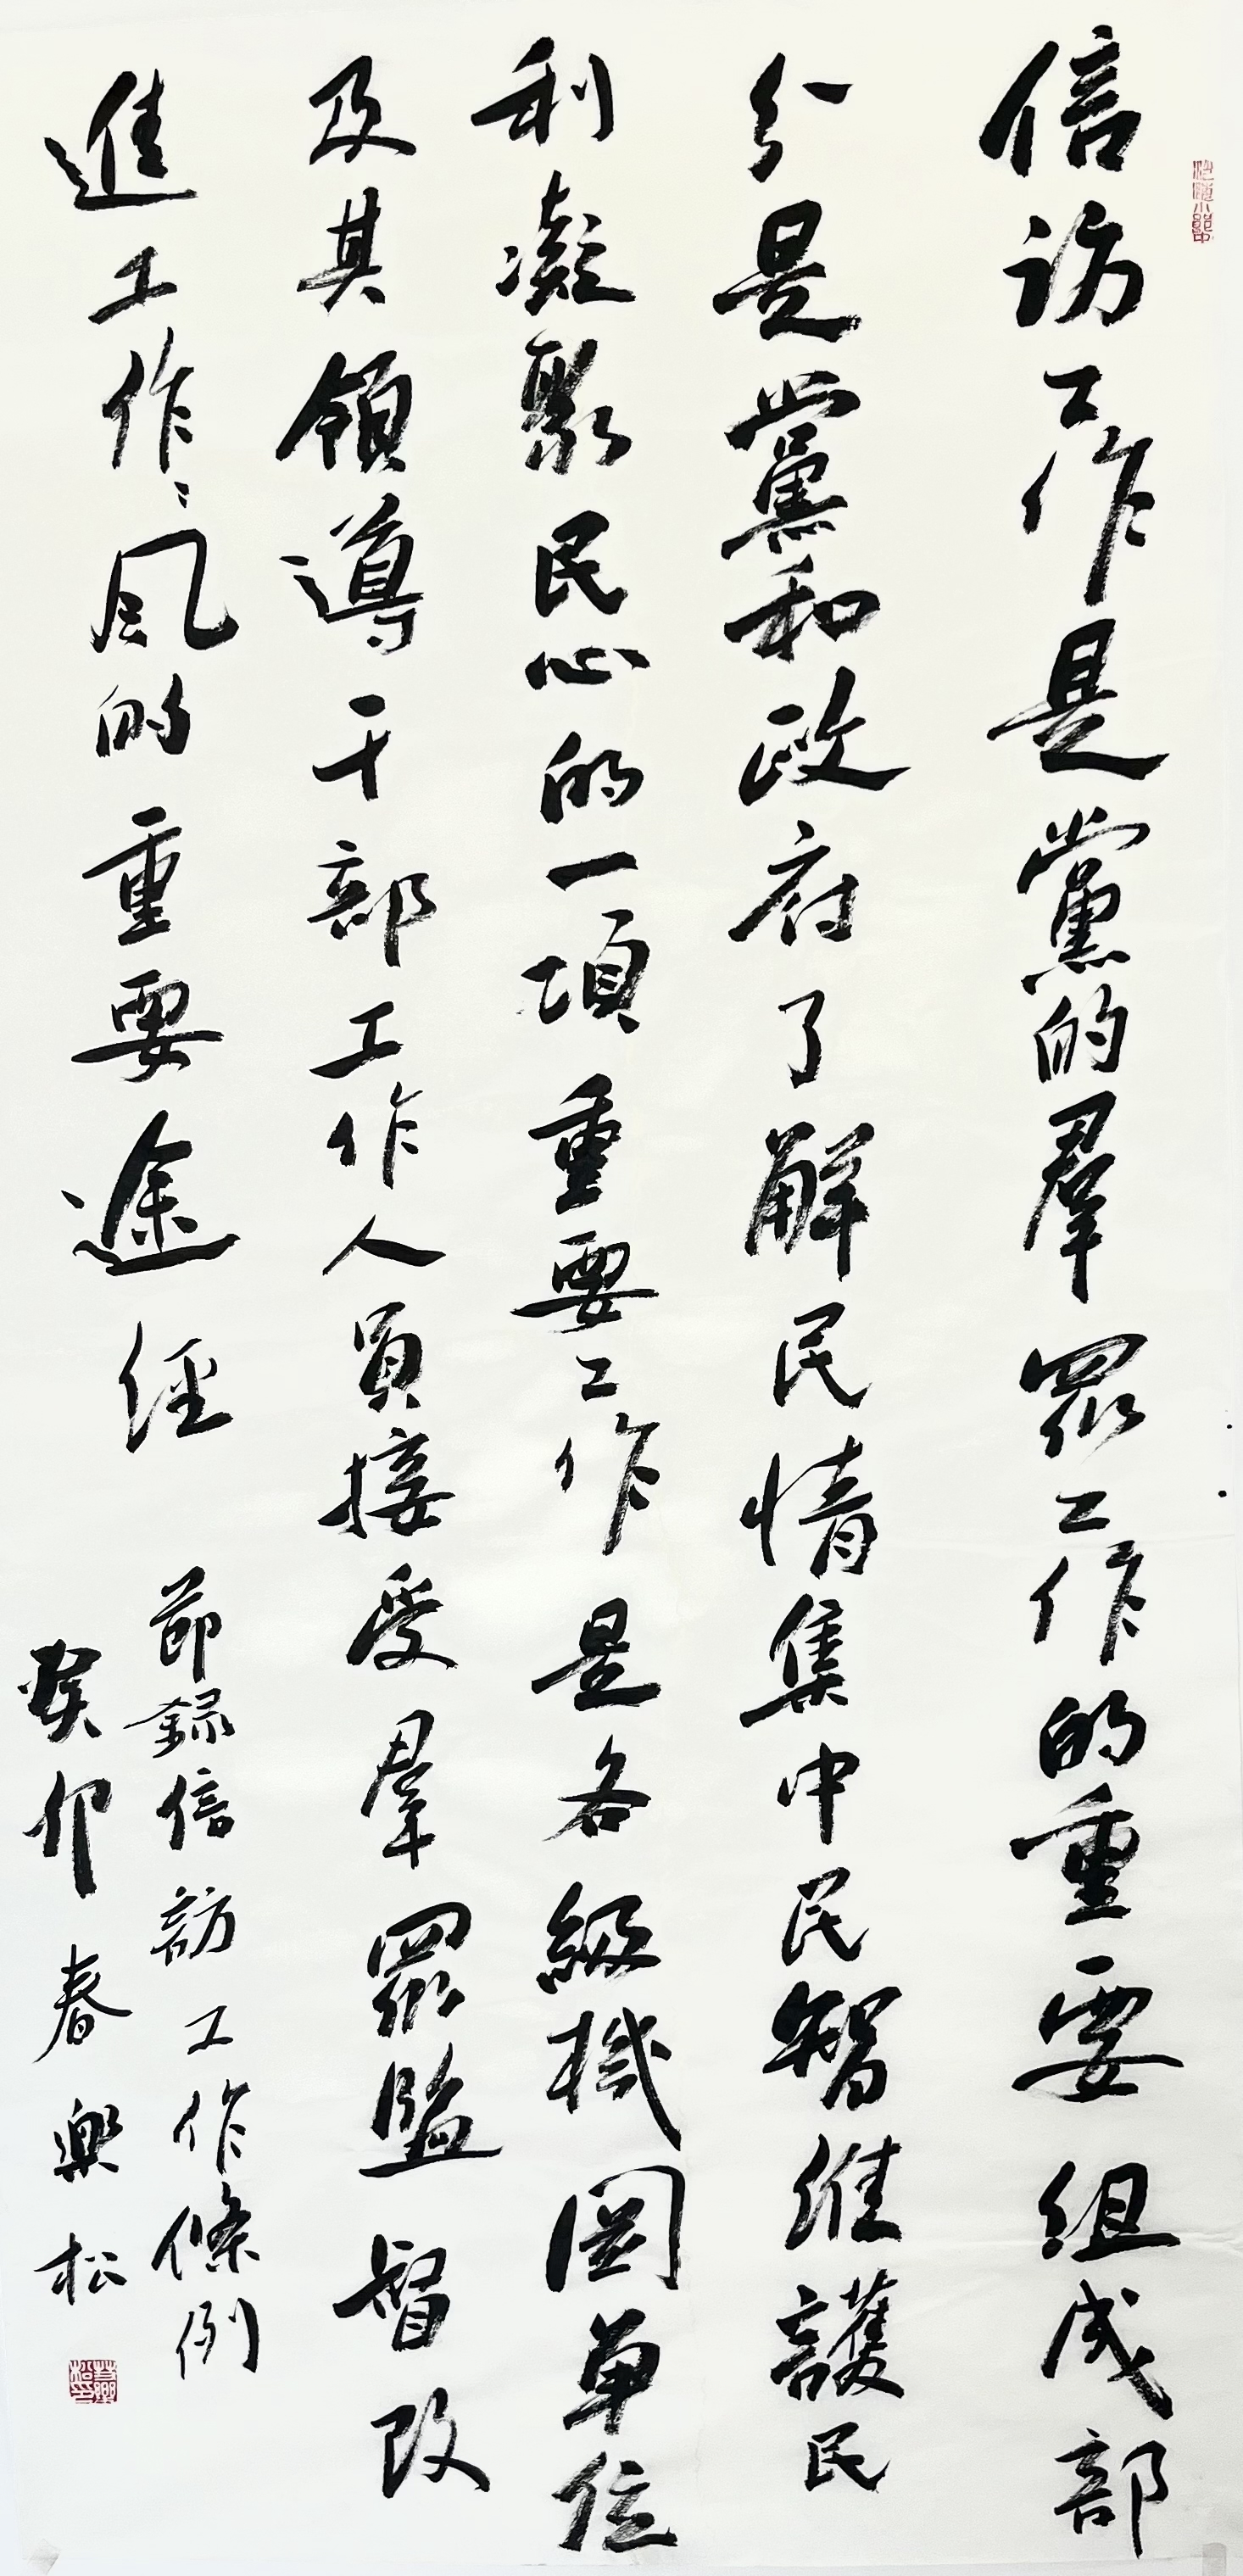 信访工作是黨的羣眾工作的重要組成部
分是黨和政府了解民情集中民智維護民
利凝聚民心的一項重要工作是各級機関単位
及其領導干部工作人員接受羣眾監督改
進工作、風的重要途径
節録信訪工作條例
癸卯春樂松